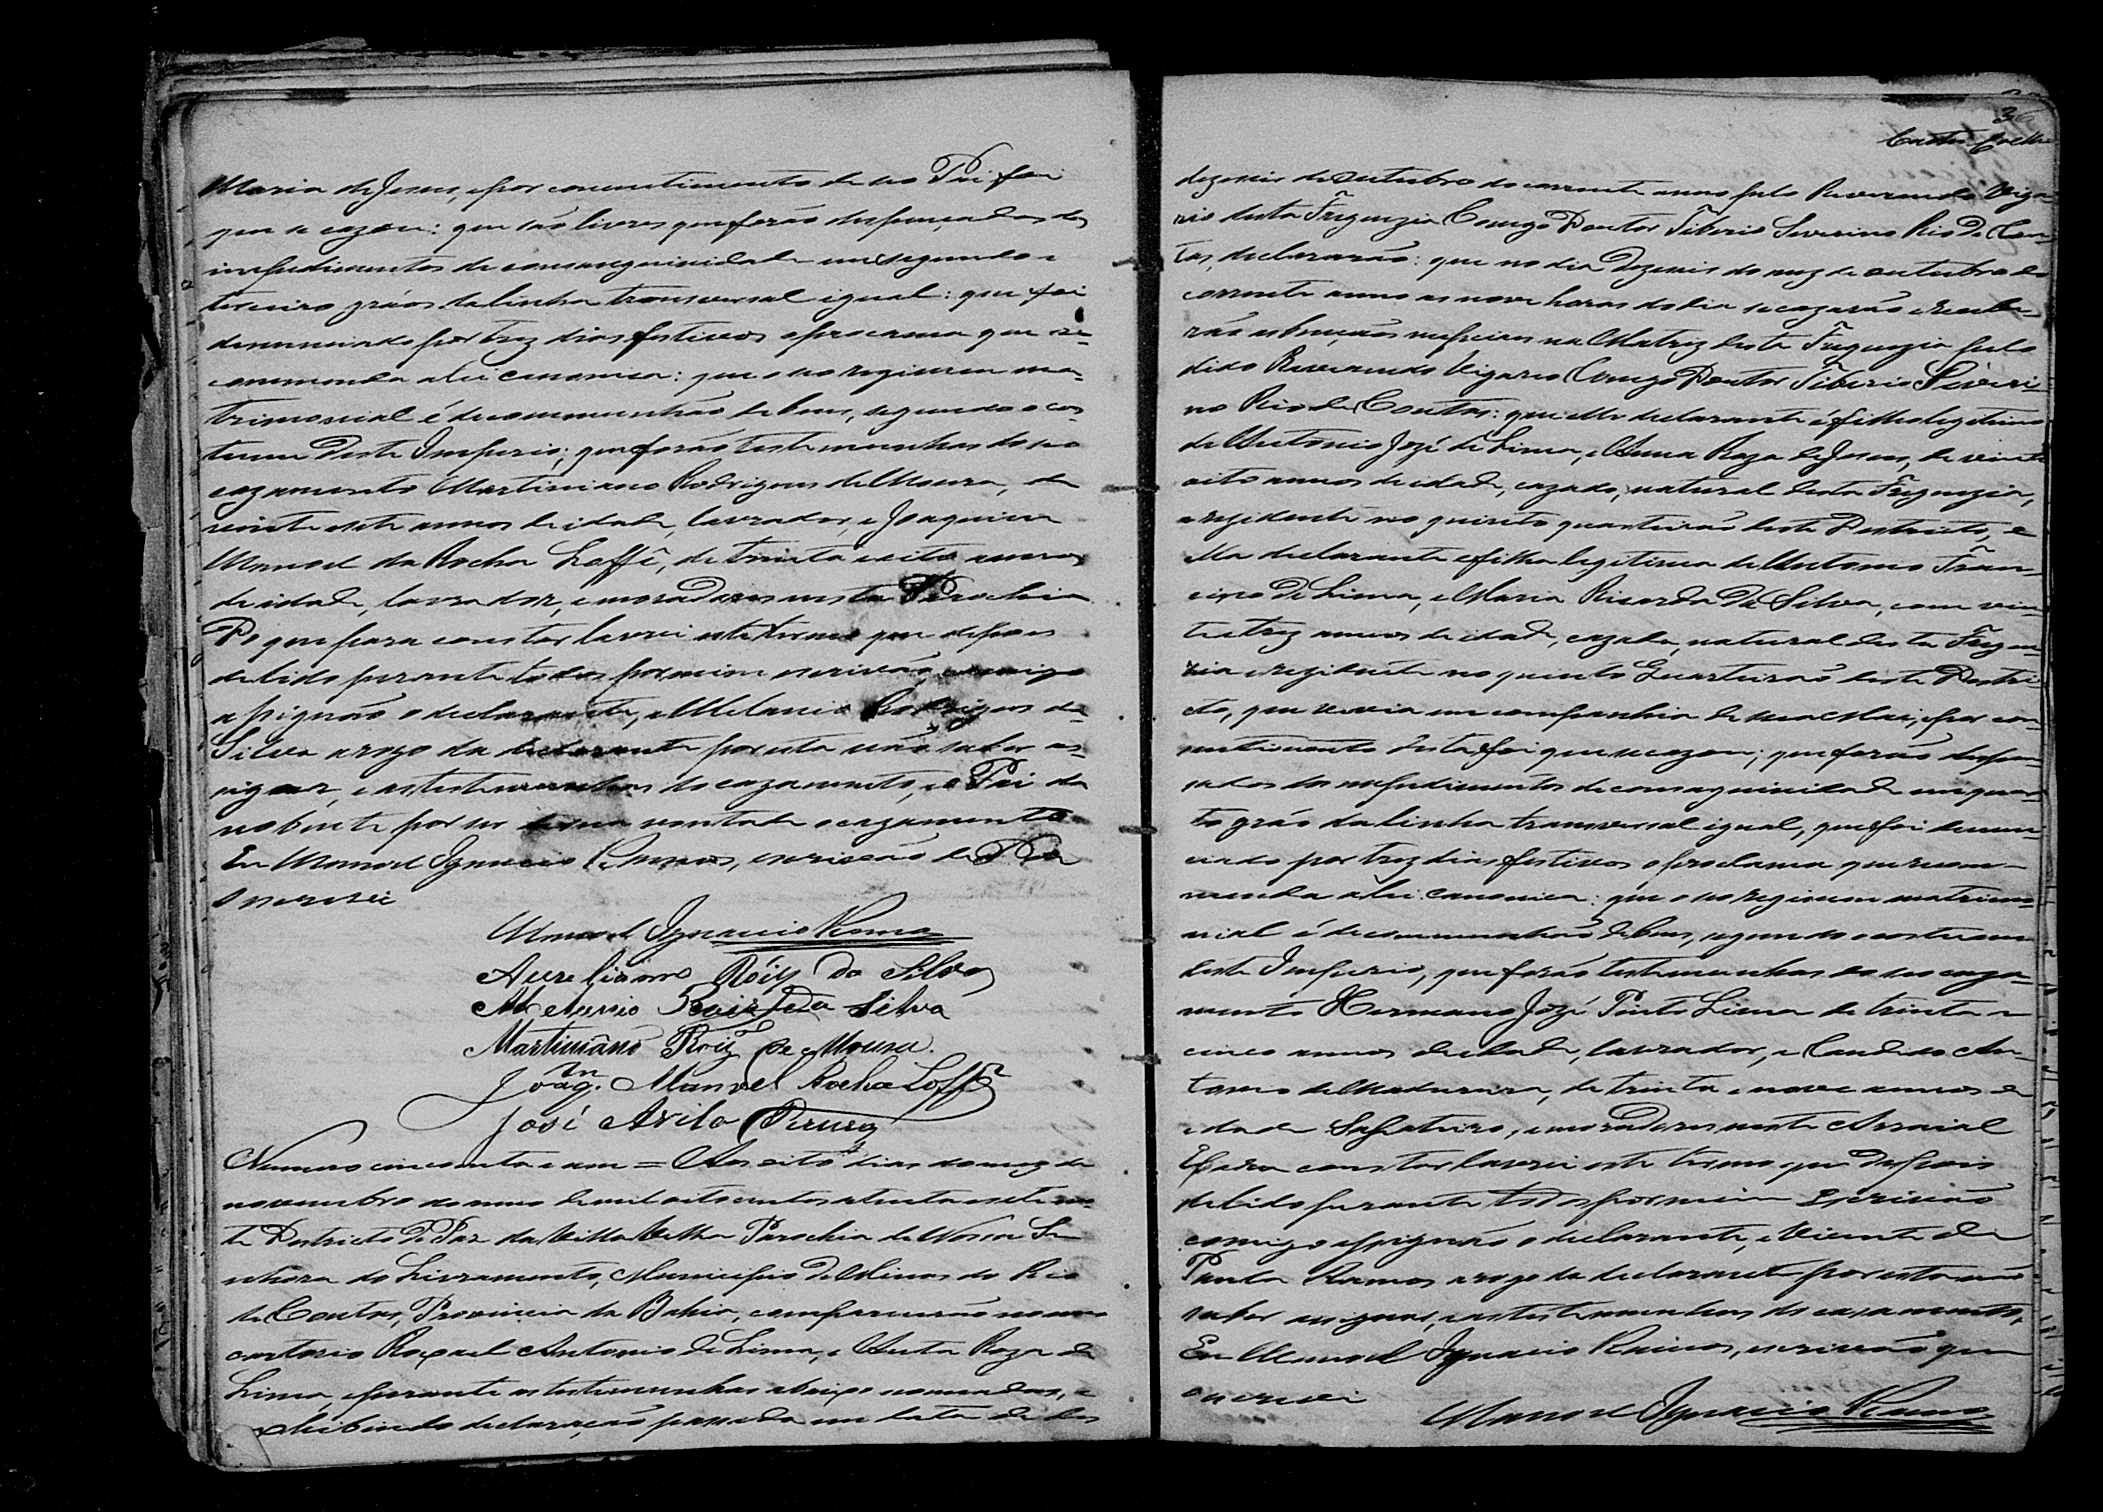 Maria de Jesus, e por concentimento de seo Pai foi
que se cazou: que são livres que forão despençados dos
impedimentos de consanguinidade em segundo e
terceiro gráos da linha transversal igual: que foi
denunciado por trez dias festivos o proclama que re-
commenda a lei canonica: que o seo regimem ma-
trimonial é de communhão de bens, segundo o cos
tume deste Imperio; que forão testemunhas do seo
cazamento Martiniano Rodrigues de Moura, de
vinte e sete annos de idade, lavrador, e Joaquim
Manoel da Rocha Loffê, de trinta e oito annos
de idade, lavrador, e moradores nesta Parochia
Do que para constar lavrei este termo que depois
de lido perante todos por mim escrivão, comigo
assignão o declarante, e Melanio Rodrigues da
Silva a rogo da declarante por esta não saber as-
signar, e as testemunhas do cazamento, e o Pai da
nobente por ser de sua vontade o cazamento
Eu Manoel Ignacio Ramos, escrivão de Paz
o escrevi
Manoel Ignacio Ramos
Aureliano Róiz da Silva
Melanio Roiz da Silva
Martiniano Roiz de Moura.
Joaqm. Manoel Rocha Loffê
José Avila Pereira
Numero cincoenta e um = Aos oito dias do mez de
novembro do anno de mil oito centos oitenta e sete nes-
te Destricto de Paz da Villa Velha Parochia de Nossa Se
nhora do Livramento, Municipio de Minas do Rio
de Contas, Provincia da Bahia, comparecerão no meo
cartorio Rafael Antonio de Lima, e Auta Roza de
Lima, e perante as testemunhas abaixo nomeadas, e
exhibindo declaração passada em data de des
36
dezeseis de Outubro do corrente anno pelo Reverendo Viga-
rio desta Freguezia Conego Doutor Tiberio Severino Rio de Con-
tas, declararão: que no dia dezeseis do mez de outubro do
corrente anno as nove horas do dia se cazarão e recebe-
rão as bençãos nupciaes na Matriz desta Freguezia pelo
dito Reverendo Vigario Conego Doutor Tiberio Severi-
no Rio de Contas: que elle declarante é filho legitimo
de Antonio José de Lima, e Anna Roza de Jesus, de vinte
oito annos de idade, cazado, natural desta Freguezia,
e rezidente no quinto quarteirão deste Destricto, e
ella declarante e filha legitima de Antonio Fran-
cisco de Lima, e Maria Ricarda da Silva, com vin
te e trez annos de idade, cazada, natural desta Fregue
zia e rezidente no quinto Quarteirão deste Destri-
cto, que vevia em companhia de sua Mai, e por con-
centimento desta foi que se cazou; que forão dispen-
sados dos impedimentos de consaguinidade em quar-
to gráo da linha transversal igual, que foi denun-
ciado por trez dias festivos o proclama que recom-
menda a lei canonica: que o seo regimem matrimo-
nial é de communhão de bens, segundo o costume
deste Imperio, que forão testemunhas do seo caza-
mento Hermano José Pinto Lima de trinta e
cinco annos de idade, lavrador, e Candido An-
tonio de Madureira, de trinta e nove annos de
idade Sapateiro, e moradores neste Arraial
E para constar lavrei este termo que depois
de lido perante todos por mim Escrivão
comigo assignão o declarante, e Vicente de
Paula Ramos a rogo da declarante por esta não
saber assignar, e as testemunhas do casamento,
Eu Manoel Ignacio Ramos, escrivão que
escrevi
Manoel Ignacio Ramos